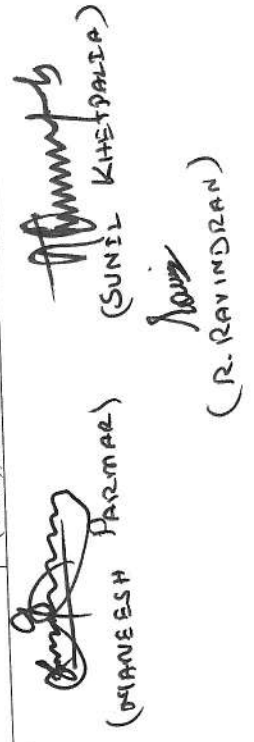 (MANEESH PARMAR)
(SUNIL KHETPALIA)
(R. RAVINDRAN)